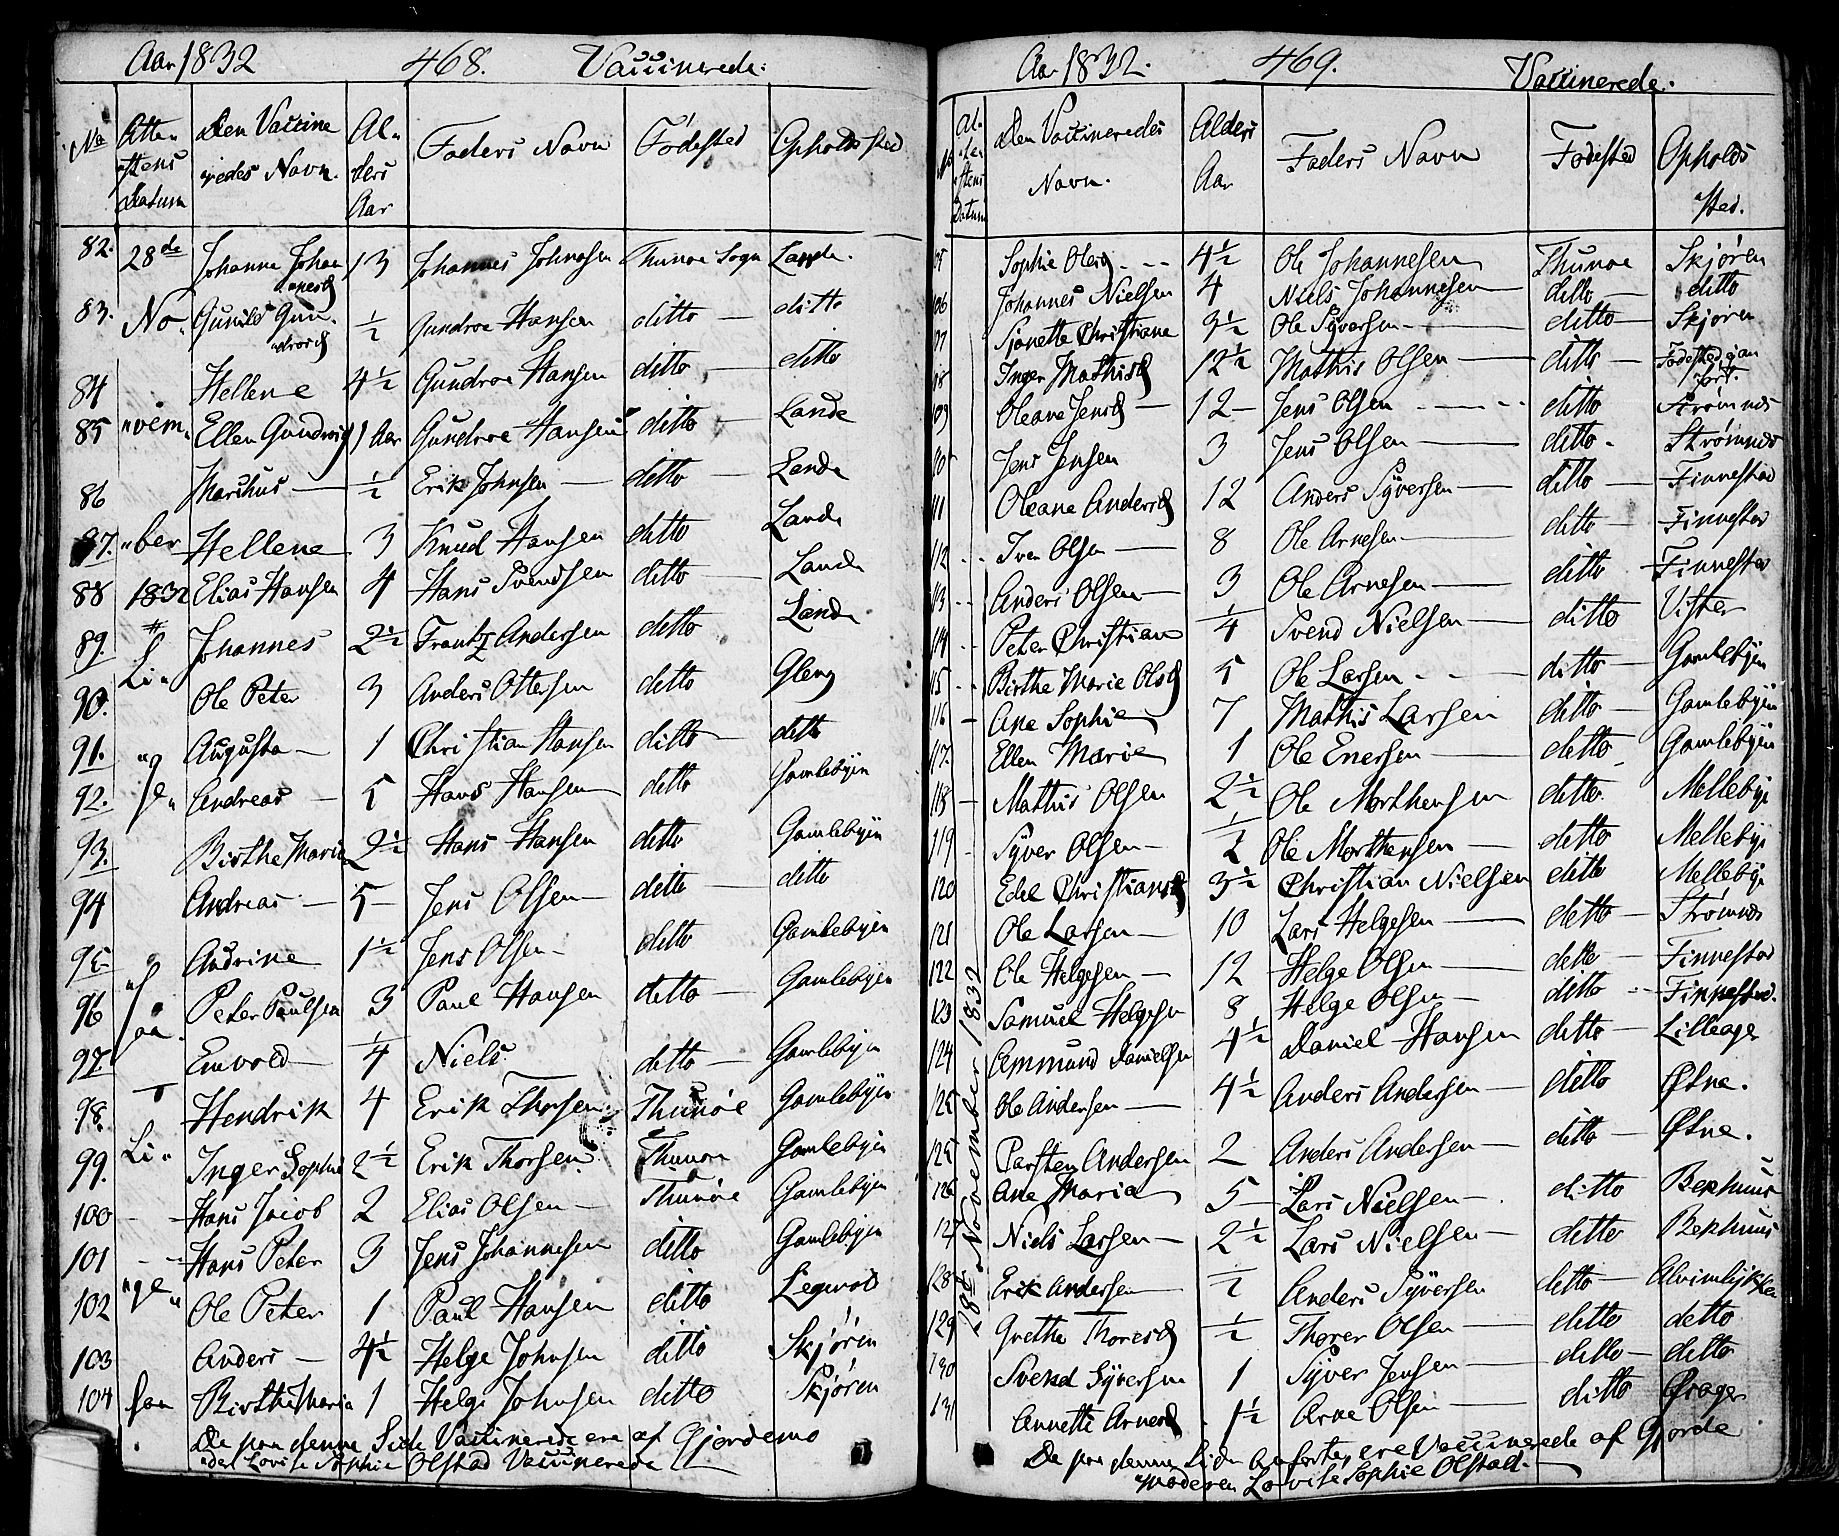 Aar 1832 468. Vaccinerede.
No Attestens Datum Den Vaccineredes Navn. Alders Aar Faders Navn Fødested Opholdssted
82. 28de Johanne Johannesd 13 Johannes Johnsen Thunøe Sogn Lande.
83. No Gunild Gundrosd ½ Gundroe Hansen ditto ditto
84 " Hellene 4½ Gundroe Hansen ditto — ditto
85 "vem" Ellen Gundrosd 1 Aar Gundroe Hansen ditto — Lande
86 Marthus — ½ Erik Johnsen — ditto Lande
87. "ber Hellene 3 Knud Hansen ditto Lande
88 1832 Elias Hansen 4 Hans Svendsen ditto — Lande
89. Johannes 2½ Frantz Andersen ditto Lande
90. Li" Ole Peter 3 Anders Ottersen ditto Gleng
91. "g Augusta — 1 Christian Hansen ditto — ditto
92. Andreas — 5 Hans Hansen ditto Gamlebyen
93. Birthe Maria 2½ Hans Hansen ditto Gamlebyen
94 Andreas — 5 Jens Olsen — ditto — ditto
95 Andrine 1½ Jens Olsen — ditto Gamlebyen
96 Peter Paulsen 3 Paul Hansen ditto — Gamlebyen
97. Emvold — ¼ Niels ditto — Gamlebyen
98. Hendrik 4 Erik Thorsen Thunøe Gamlebyen
99. Li" Inger Sophie 2½ Erik Thorsen Thunøe Gamlebyen
100 — Hans Jacob 2 Elias Olsen — Thunøe Gamlebyen
101 — Hans Peter 3 Jens Johannesen ditto Gamlebyen
102 "ge" Ole Peter 1 Paul Hansen ditto
103 Anders — 4½ Helge Johnsen ditto Skjøren
104 Birthe Maria 1 Helge Johnsen ditto Skjøren
De paa denne Side Vaccinerede ere af Gjordemo
"der Lovise Sophie Olstad Vaccinerede
Aar 1832. 469. Vaccinerede.
No Attestens Datum Den Vaccineredes Navn. Alders Aar Faders Navn Fødested Opholds Sted.
28de November 1832
05 Sophie Olesd 4½ Ole Johannesen Thunøe Skjøren
06 Johannes Nielsen 4 Niels Johannesen ditto — ditto
07 Sjanette Christiane 3½ Ole Syversen — ditto — Skjøren
08 Inger Mathisd 12½ Mathis Olsen — ditto —
109 Oleane Jensd — 12 — Jens Olsen ditto Strømnes
Jens Jensen 3 Jens Olsen — ditto Strømnes
111 Oleane Andersd 12 Anders Syversen — ditto — Finnestad
112 Iver Olsen — 8 Ole Arnesen — ditto — Finnestad
113 Anders Olsen — 3 Ole Arnesen — ditto Finnestad
114 Peter Christian ¼ Svend Nielsen — ditto Vister
115 Birthe Marie Olsd 5 Ole Larsen ditto — Gamlebyen
116 — Ane Sophie 7 Mathis Larsen ditto — Gamlebyen
117. Ellen Maria 1 Ole Enersen ditto Gamlebyen
118 — Mathis Olsen 2½ Ole Morthensen ditto Mellebye
119 Syver Olsen — ½ Ole Morthensen — ditto Mellebye
120 Edel Christiansd 3½ Christian Nielsen ditto Mellebye
121 Ole Larsen — 10 Lars Helgesen — ditto — Strømnes
122 Ole Helgesen — 12 Helge Olsen — ditto — Finnestad
123 Samuel Helgesen 8 Helge Olsen — ditto Finnestad.
124 Ammund Danielsen 4½ Daniel Hansen ditto — Lilleager
125 Ole Andersen — 4½ Anders Andersen — ditto Østne.
125 Parsten Andersen 2 Anders Andersen — ditto — Østne.
126 Ane Maria 5 — Lars Nielsen — ditto Bephuus
127 Niels Larsen — 2½ Lars Nielsen — ditto Bephuus
128 Erik Andersen — ½ Anders Syversen ditto —
129 Grethe Thoresd ½ Thorer Olsen — ditto ditto
130 Svend Syversen 1 Syver Jensen — ditto — ditto
131 Annette Arnesd 1½ Arne Olsen — ditto Örager
De paa denne Side anførte, ere Vaccinerede af Gjorde
"moderen Lovise Sophie Olstad. —